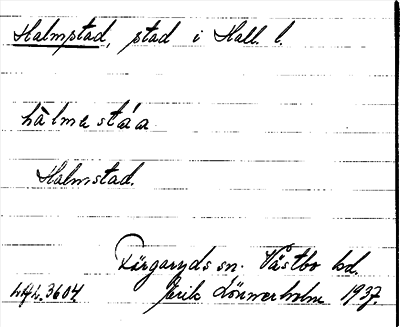 Halmstad, stad i Hall. l.
hàlmastáa
Halmstad.
Färgaryds sn. Västbo hd.
3604. Erik Lönnerholm 1937.